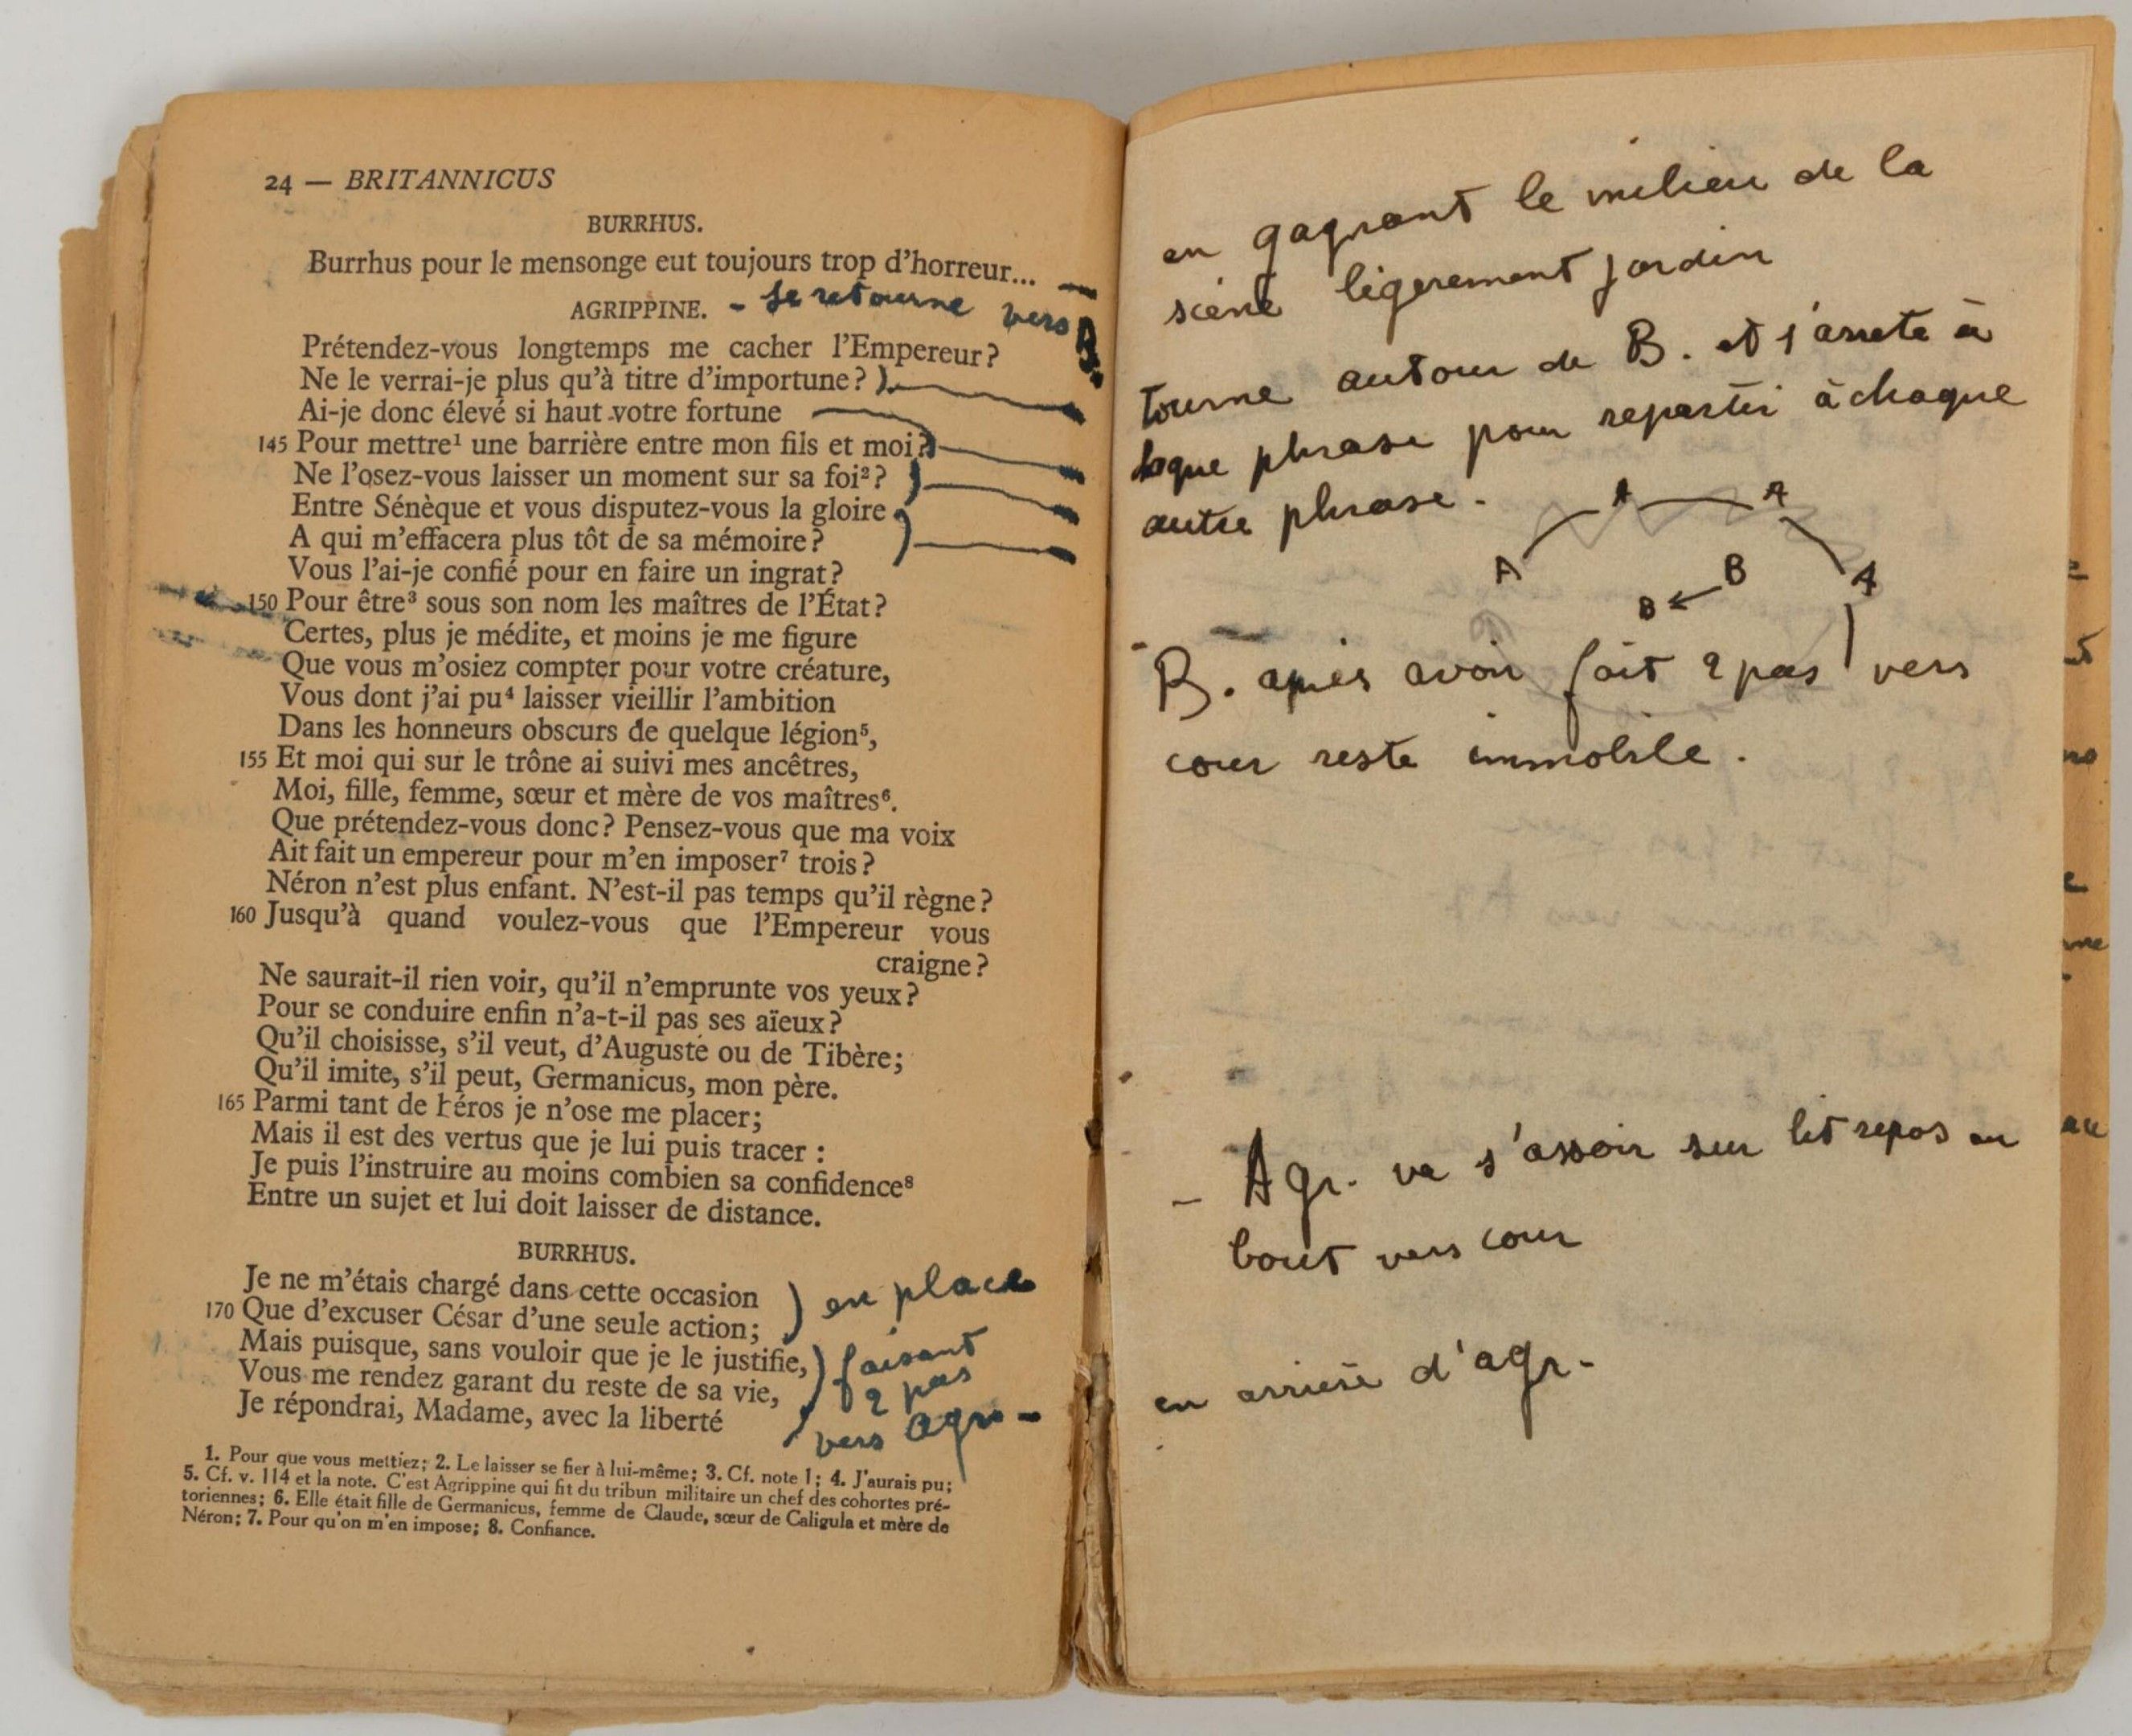 24 — BRITANNICUS
BURRHUS.
Burrhus pour le mensonge eut toujours trop d'horreur... —
AGRIPPINE. - se retourne vers B.
Prétendez-vous longtemps me cacher l'Empereur?
Ne le verrai-je plus qu'à titre d'importune?
Ai-je donc élevé si haut votre fortune
145 Pour mettre¹ une barrière entre mon fils et moi?
Ne l'osez-vous laisser un moment sur sa foi²?
Entre Sénèque et vous disputez-vous la gloire
A qui m'effacera plus tôt de sa mémoire?
Vous l'ai-je confié pour en faire un ingrat?
150 Pour être³ sous son nom les maîtres de l'État?
Certes, plus je médite, et moins je me figure
Que vous m'osiez compter pour votre créature,
Vous dont j'ai pu⁴ laisser vieillir l'ambition
Dans les honneurs obscurs de quelque légion⁵,
155 Et moi qui sur le trône ai suivi mes ancêtres,
Moi, fille, femme, sœur et mère de vos maîtres⁶.
Que prétendez-vous donc? Pensez-vous que ma voix
Ait fait un empereur pour m'en imposer⁷ trois?
Néron n'est plus enfant. N'est-il pas temps qu'il règne?
160 Jusqu'à quand voulez-vous que l'Empereur vous
craigne?
Ne saurait-il rien voir, qu'il n'emprunte vos yeux?
Pour se conduire enfin n'a-t-il pas ses aïeux?
Qu'il choisisse, s'il veut, d'Auguste ou de Tibère;
Qu'il imite, s'il peut, Germanicus, mon père.
165 Parmi tant de héros je n'ose me placer;
Mais il est des vertus que je lui puis tracer :
Je puis l'instruire au moins combien sa confidence⁸
Entre un sujet et lui doit laisser de distance.
BURRHUS.
Je ne m'étais chargé dans cette occasion
170 Que d'excuser César d'une seule action;
en place
Mais puisque, sans vouloir que je le justifie,
Vous me rendez garant du reste de sa vie,
Je répondrai, Madame, avec la liberté
faisant
2 pas
vers Agr. -
1. Pour que vous mettiez; 2. Le laisser se fier à lui-même; 3. Cf. note 1; 4. J'aurais pu;
5. Cf. v. 114 et la note. C'est Agrippine qui fit du tribun militaire un chef des cohortes pré-
toriennes; 6. Elle était fille de Germanicus, femme de Claude, sœur de Caligula et mère de
Néron; 7. Pour qu'on m'en impose; 8. Confiance.
en gagnant le milieu de la
scène légerement jardin
tourne autour de B. et s'arrete à
phrase pour repartir à chaque
autre phrase.
A A
A B A
B
- B. après avoir fait 2 pas vers
cour reste immobile.
- Agr. va s'assoir sur lit repos au
bout vers cour
en arrière d'Agr.